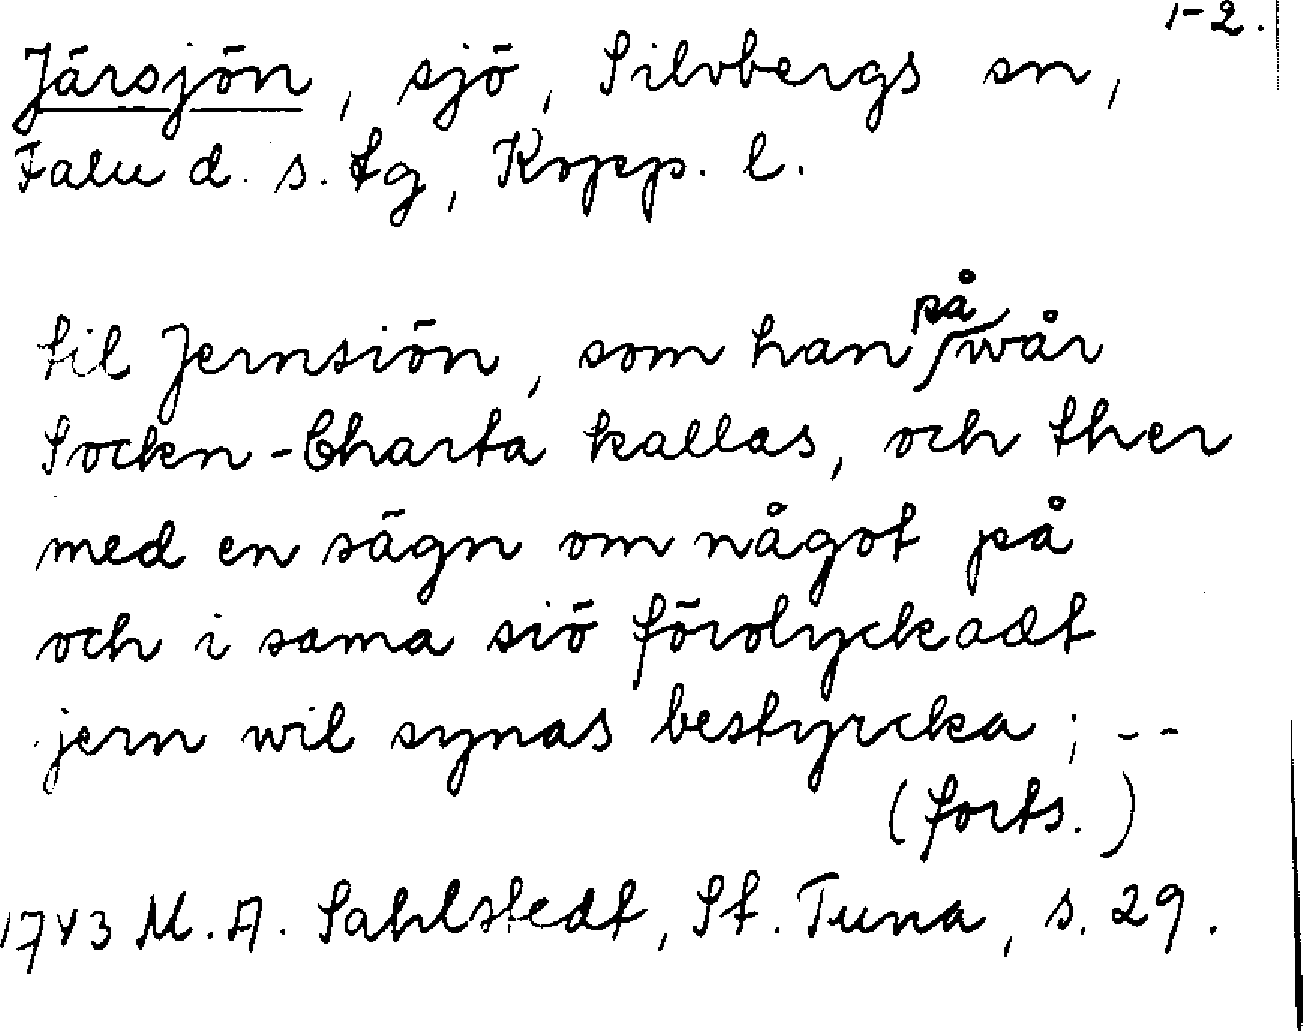 1-2.
Järsjön, sjö, Silvbergs sn,
Falu d. s. tg, Kopp. l.
til Jernsiön, som han på wår
Sockn-Charta kallas, och ther
med en sägn om något på
och i sama siö förolyckadt
jern wil synas bestyrcka; --
(forts.)
1743 M. A. Sahlstedt, St. Tuna, s. 29.